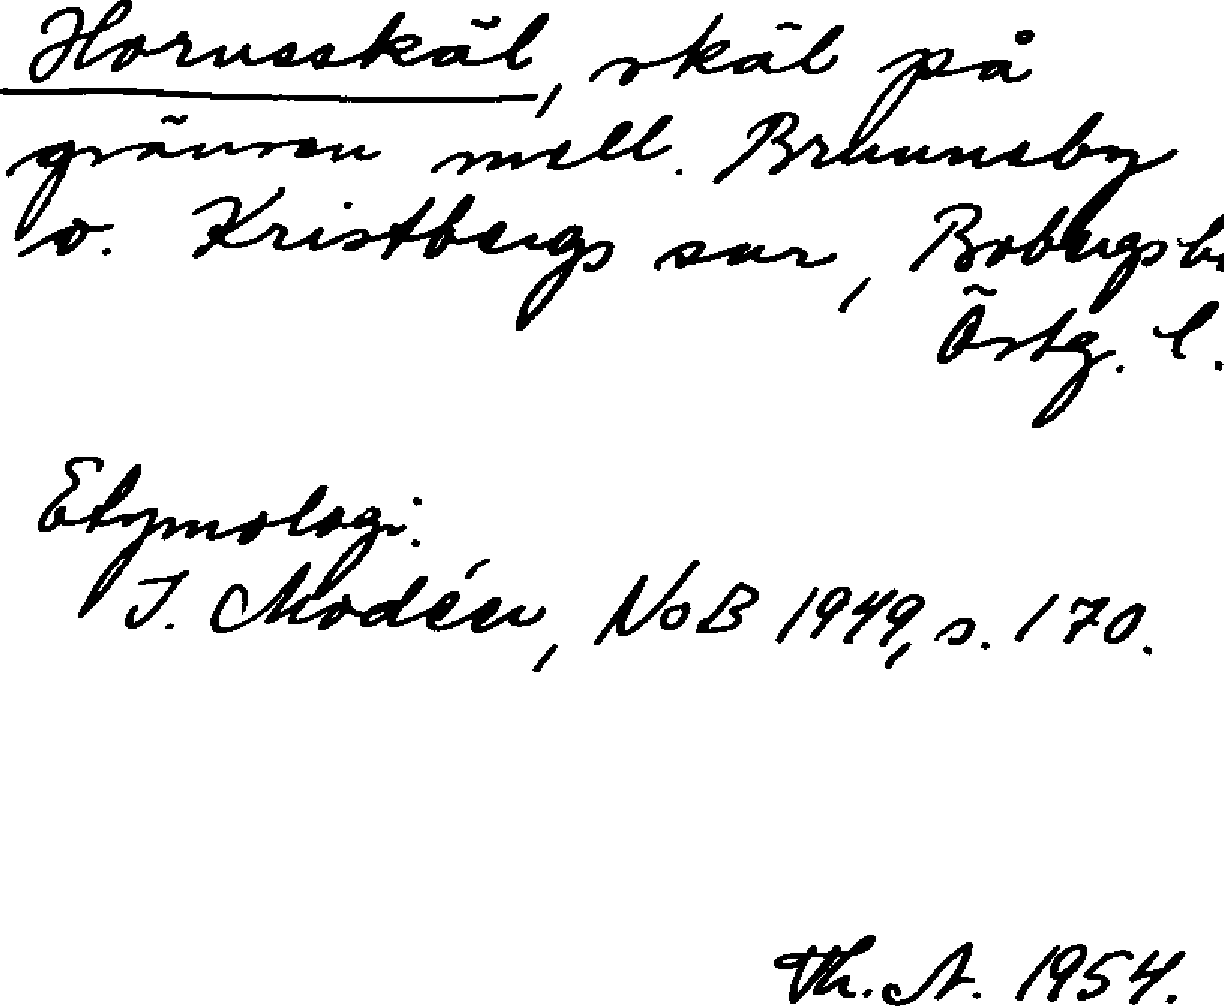 Hornsskäl, skäl på
gränsen mell. Brunneby
o. Kristbergs snr, Bobergs h
Östg. l.
Etymologi:
I. Modéer, NoB 1949, s. 170.
Th. A. 1954.